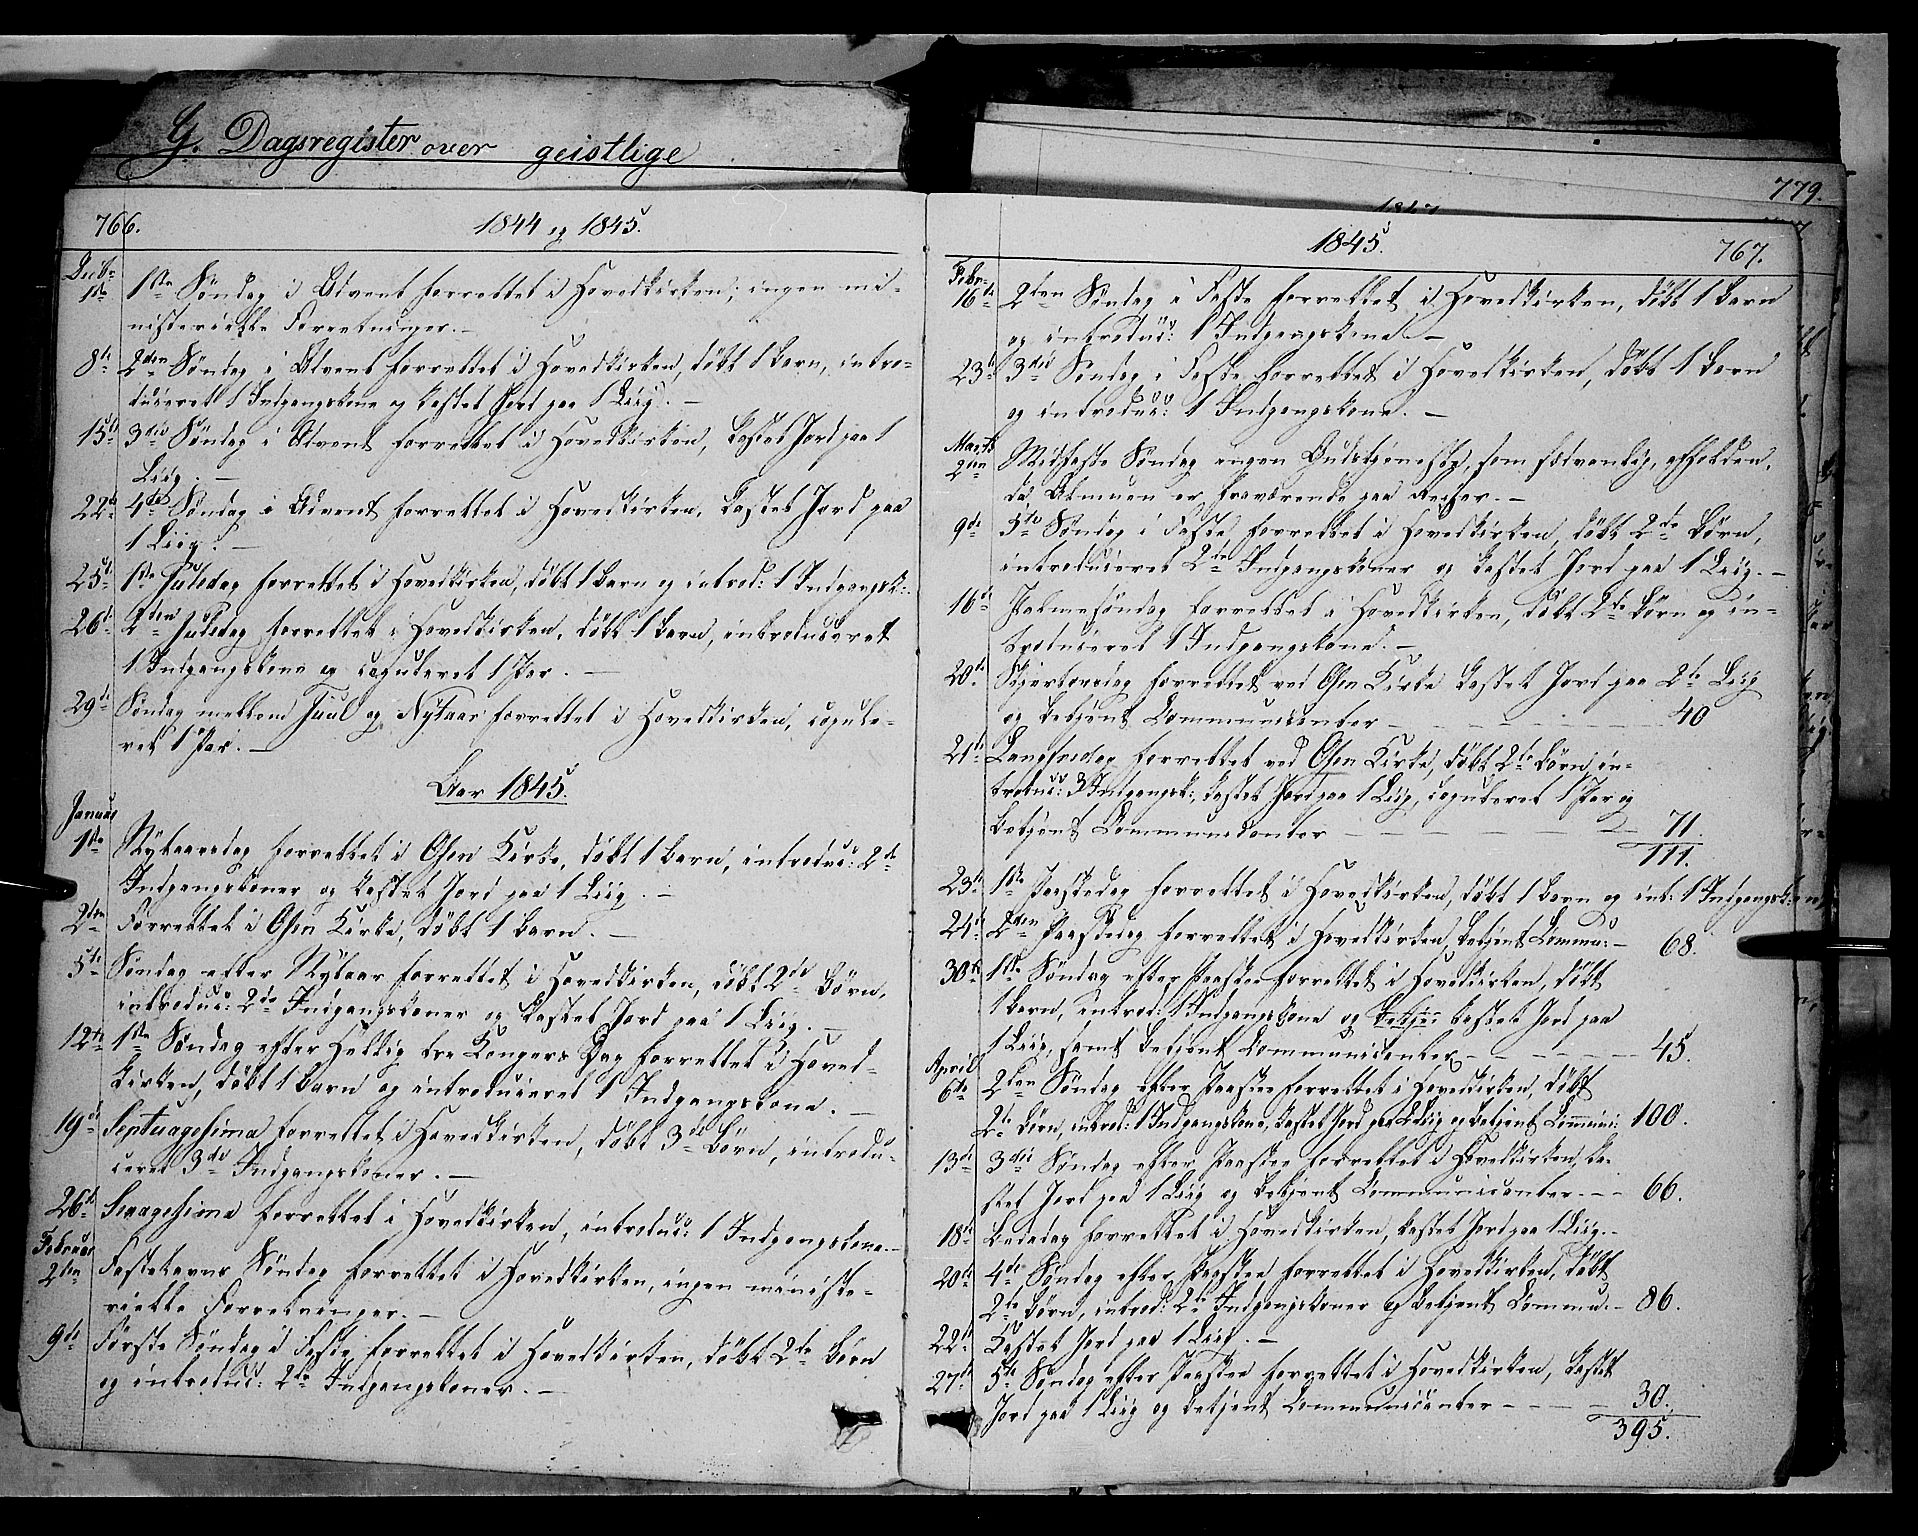 G. Dagsregister over geistlige
766.
1844 og 1845.
Decbr
1ste 1ste Søndag i Advent forrettet i Hovedkirken; ingen mi-
nisterielle Forretninger. –
8de 2den Søndag i Advent forrettet i Hovedkirken, døbt 1 Barn, intro-
duceret 1 Indgangskone og kastet Jord paa 1 Liig. –
15de 3die Søndag i Advent forrettet i Hovedkirken, kastet Jord paa 1
Liig. –
22de 4de Søndag i Advent forrettet i Hovedkirken, kastet Jord paa
1 Liig. –
25de 1ste Juledag forrettet i Hovedkirken, døbt 1 Barn og introd: 1 Indgangsk:
26de 2den Juledag forrettet i Hovedkirken, døbt 1 Barn, introduceret
1 Indgangskone og copuleret 1 Par. –
29de Søndag mellem Juul og Nytaar forrettet i Hovedkirken, copule-
ret 1 Par. –
Aar 1845.
Januar
1ste Nytaarsdag forrettet i Osen Kirke, døbt 1 Barn, introduc: 2de
Indgangskoner og kastet Jord paa 1 Liig. –
2den Forrettet i Osen Kirke, døbt 1 Barn. –
5te Søndag efter Nytaar forrettet i Hovedkirken, døbt 2de Børn,
introduc: 2de Indgangskoner og kastet Jord paa 1 Liig. –
12te 1ste Søndag efter Hellig tre Kongers Dag forrettet i Hoved-
kirken, døbt 1 Barn og introduceret 1 Indgangskone. –
19de Septuagesima forrettet i Hovedkirken, døbt 3de Børn, introdu-
ceret 3de Indgangskoner. –
26de Sexagesima forrettet i Hovedkirken, introduc: 1 Indgangskone. –
Februar
2den Fastelavns Søndag forrettet i Hovedkirken, ingen ministe-
rielle Forretninger. –
9de Første Søndag i Faste forrettet i Hovedkirken, døbt 2de Børn
og introduc: 2de Indgangskoner. –
779.
1847
1845.
767.
Febr.
16de 2den Søndag i Faste forrettet i Hovedkirken, døbt 1 Barn
og introduc: 1 Indgangskone –
23de 3die Søndag i Faste forrettet i Hovedkirken, døbt 1 Barn
og introduc: 1 Indgangskone. –
Marts
2den Midfaste Søndag ingen Gudstjeneste, som sædvanlig, afholden,
da Almuen er fraværende paa Reiser. –
9de 5te Søndag i Faste forrettet i Hovedkirken, døbt 2de Børn,
introduceret 2de Indgangskoner og kastet Jord paa 1 Liig. –
16de Palmesøndag forrettet i Hovedkirken, døbt 2de Børn og in-
troduceret 1 Indgangskone. –
20de Skjertorsdag forrettet ved Osen Kirke kastet Jord paa 2de Liig
og betjent Communicanter – – – – 40
21de Langfredag forrettet ved Osen Kirke, døbt 2de Børn, in-
troduc: 3 Indgangsk:, kastet Jord paa 1 Liig, copuleret 1 Par og
betjent Communicanter – – – – 71.
111.
23de 1ste Paaskedag forrettet i Hovedkirken, døbt 1 Barn og int: 1 Indgangskone
24de 2den Paaskedag forrettet i Hovedkirken, betjent Commu: – 68.
30te 1ste Søndag efter Paaske forrettet i Hovedkirken, døbt
1 Barn, introd: 1 Indgangskone og betje: kastet Jord paa
1 Liig, samt betjent Communicanter – – – – 45.
April
6te 2den Søndag efter Paaske forrettet i Hovedkirken, døbt
2de Børn, introd: 1 Indgangskone, kastet Jord paa 1 Liig og betjent Communi: 100.
13de 3die Søndag efter Paaske forrettet i Hovedkirken, ka-
stet Jord paa 1 Liig og betjent Communicanter. – – 66.
18de Bededag forrettet i Hovedkirken, kastet Jord paa 1 Liig. –
20de 4de Søndag efter Paaske forrettet i Hovedkirken, døbt
2de Børn, introd: 2de Indgangskoner og betjent Commu. – 86.
22de Kastet Jord paa 1 Liig. –
27de 5te Søndag efter Paaske forrettet i Hovedkirken, kastet
Jord paa 1 Liig og betjent Communicanter – – – – 30.
395.